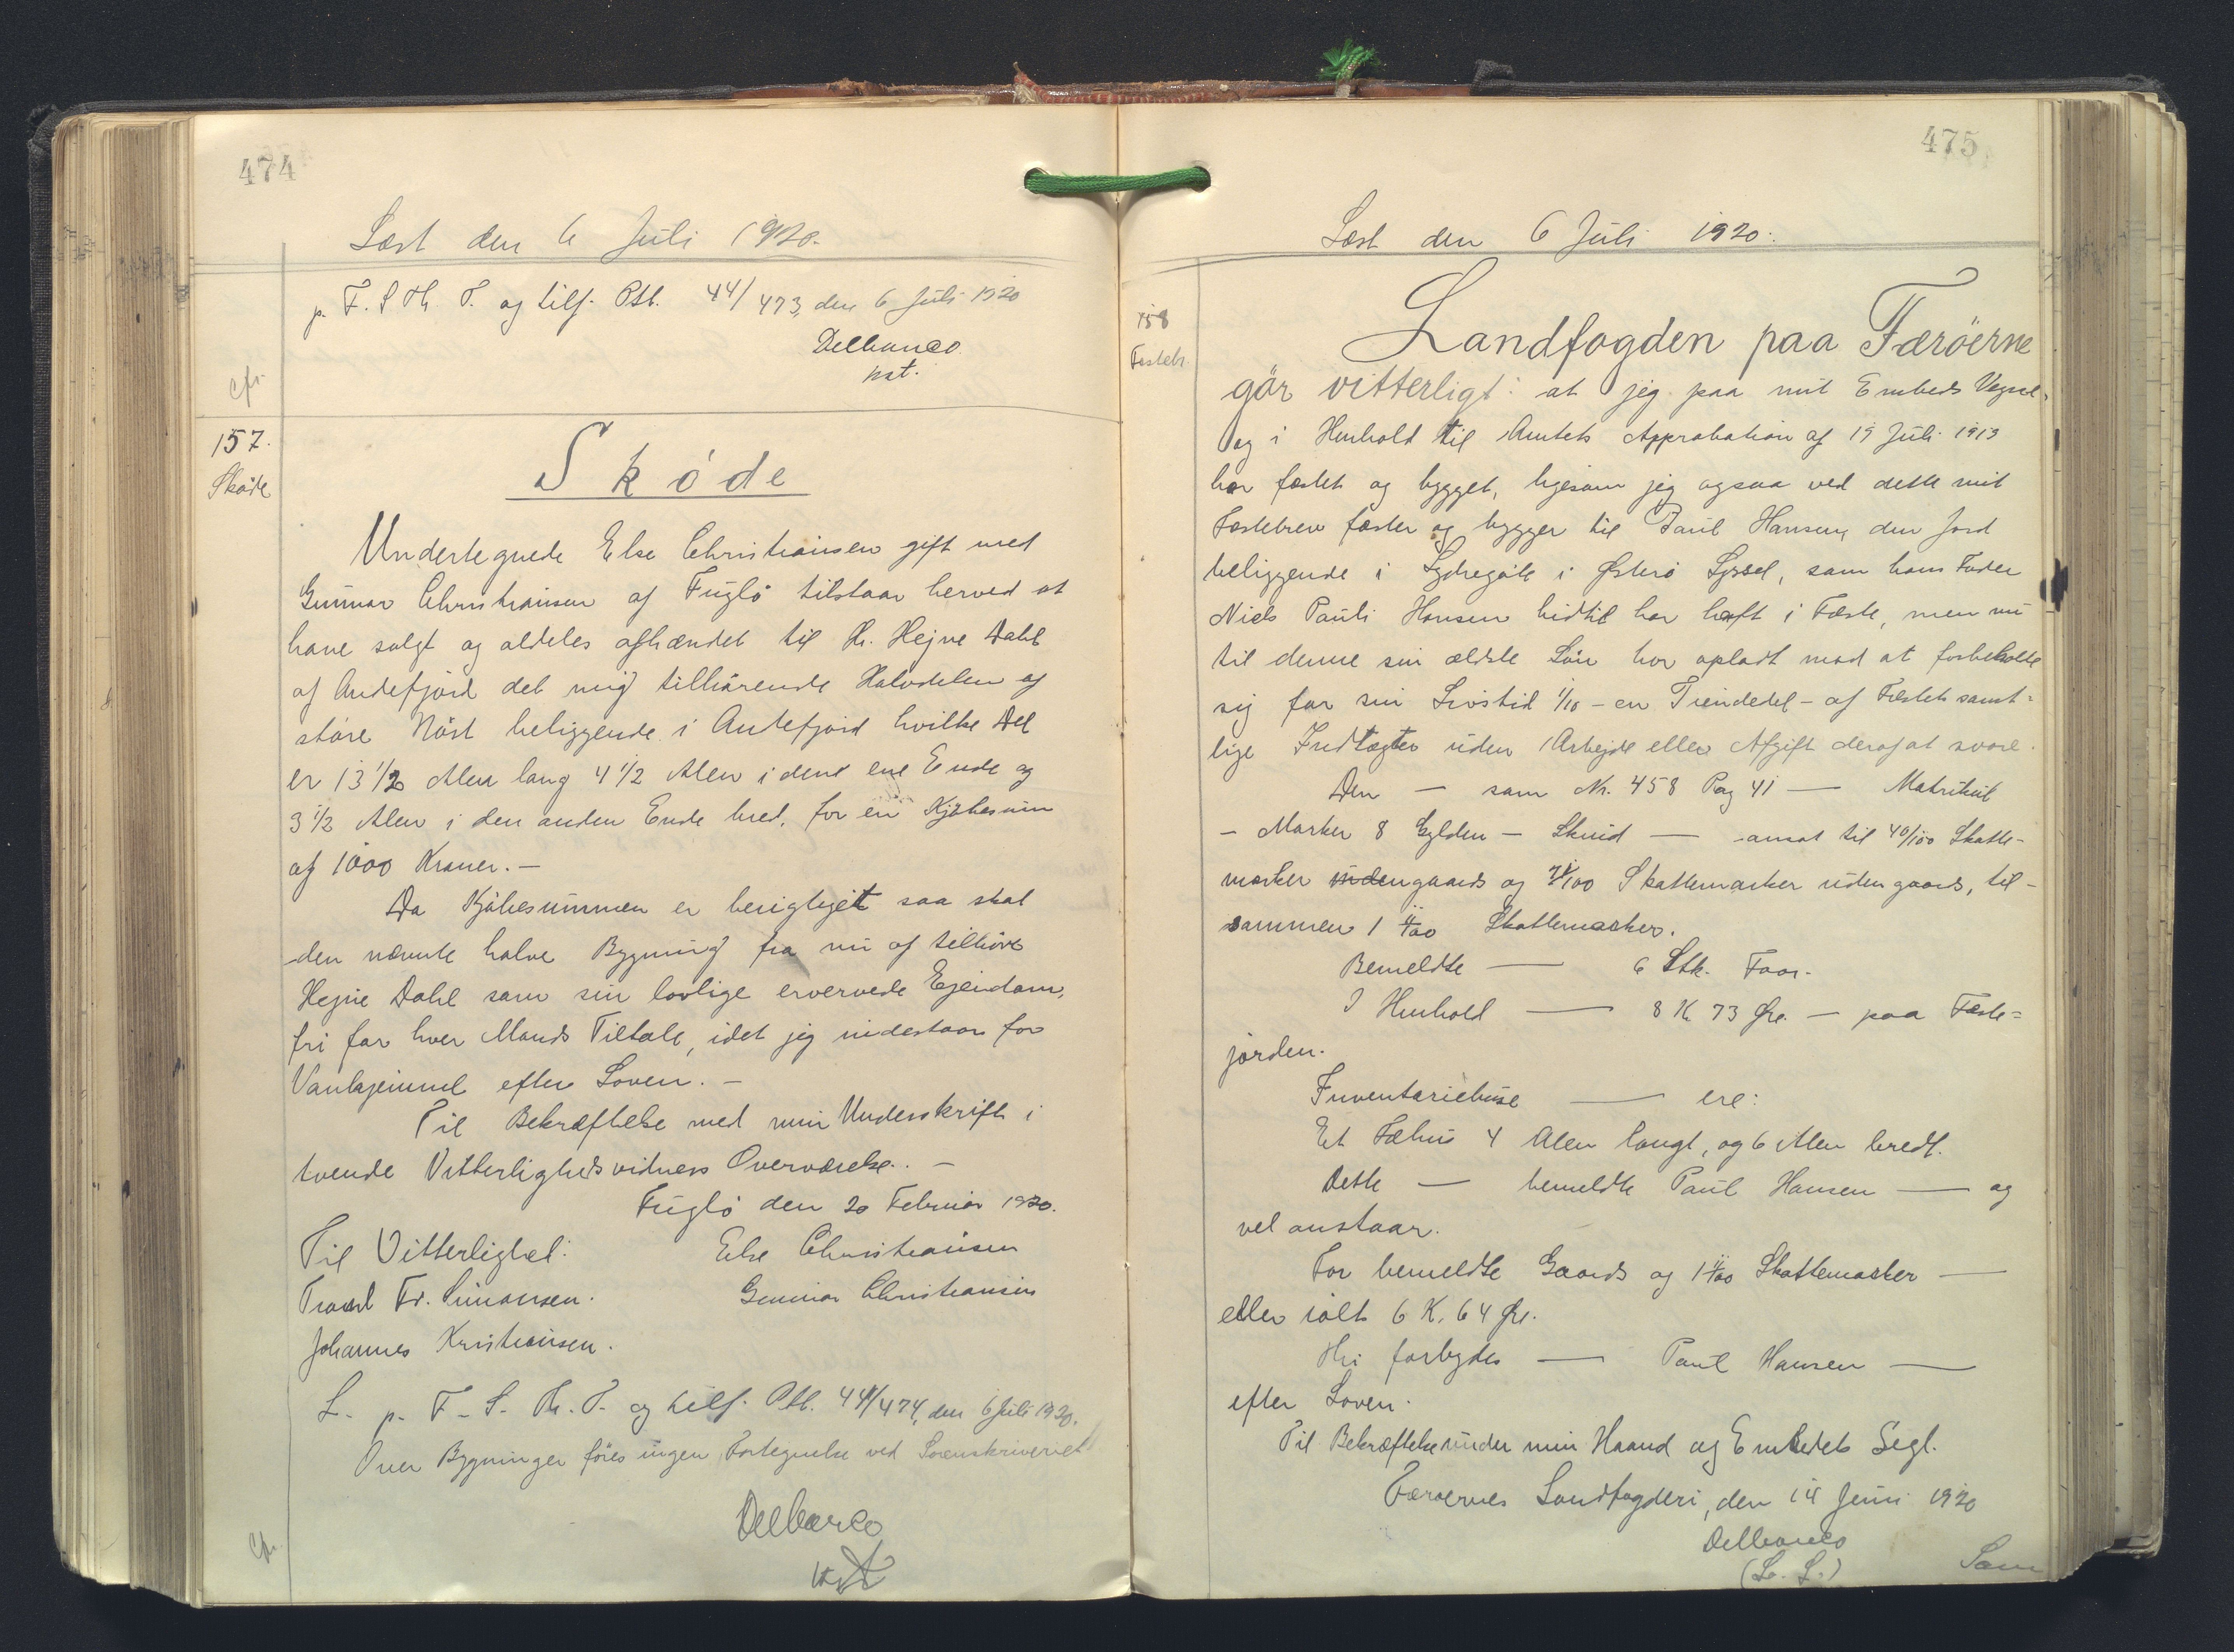 474
Læst den 6 Juli 1920.
p. F. S. Th. T. og tilf. Ptb. 44/473, den 6 Juli 1920
Delbanco
kst.
Cfr.
157.
Sköde
Sköde
Undertegnede Else Christiansen gift med
Gunnar Christiansen af Fuglö tilstaar herved at
have solgt og aldeles afhændet til Hr. Hejne Dahl
af Andefjord det mig tilhörende Halvdelen af
store Nöst beliggende i Andefjord hvilke Del
er 13 1/2 Alen lang 4 1/2 Alen i den ene Ende og
3 1/2 Alen i den anden Ende bred, for en Kjöbesum
af 1000 Kroner. —
Da Kjöbesummen er berigtiget saa skal
den nævnte halve Bygning fra nu af tilhöre
Hejne Dahl som sin lovlige ervervede Ejendom,
fri for hver Mands Tiltale, idet jeg indestaar for
Vanhjemmel efter Loven. —
Til Bekræftelse med min Underskrift i
tvende Vitterlighedsvidners Overværelse. —
Fuglö den 20 Februar 1920.
Til Vitterlighed: Else Christiansen
Fr. Simonsen. Gunnar Christiansen
Johannes Kristiansen.
L. p. F. S. Th. T. og tilf. Ptb. 44/474, den 6 Juli 1920.
Over Bygninger föres ingen Fortegnelse ved Sorenskriveriet
Delbanco
kst
Cfr.
475
Læst den 6 Juli 1920.
158
Festeb.
Landfogden paa Færöerne
gör vitterligt: at jeg paa mit Embeds Vegne
og i Henhold til Amtets Approbation af 19 Juli 1913
har fæstet og bygget, ligesom jeg ogsaa ved dette mit
Fæstebrev fæster og bygger til Paul Hansen, den Jord
beliggende i Sydregöte i Österö Syssel, som hans Fader
Niels Pauli Hansen hidtil har haft i Fæste, men nu
til denne sin ældste Sön har opladt mod at forbeholde
sig for sin Livstid 1/10 - en Tiendedel - af Fæstets samt=
lige Indtægter uden Arbejde eller Afgift deraf at svare.
Den — som Nr. 458 Pag 41 — Matrikul
— Marker 8 Gylden — Skind — ansat til 40/100 Skatte-
marker indengaards og 71/100 Skattemarker udengaards, til-
sammen 1 11/100 Skattemarker.
Bemeldte — 6 Stk. Faar.
I Henhold — 8 K 73 Øre. — paa Fæste=
jorden.
Inventariehuse — ere:
Et Fæhus 4 Alen langt, og 6 Alen bredt.
Dette — bemeldte Paul Hansen — og
vel anstaar.
For bemeldte Gaards og 1 11/100 Skattemarker —
eller ialt 6 K. 64 Øre.
Thi forbydes — Paul Hansen —
efter Loven.
Til Bekræftelse under min Haand og Embedets Segl.
Færöernes Landfogderi, den 14 Juni 1920
Delbanco
(L. S.)
Som